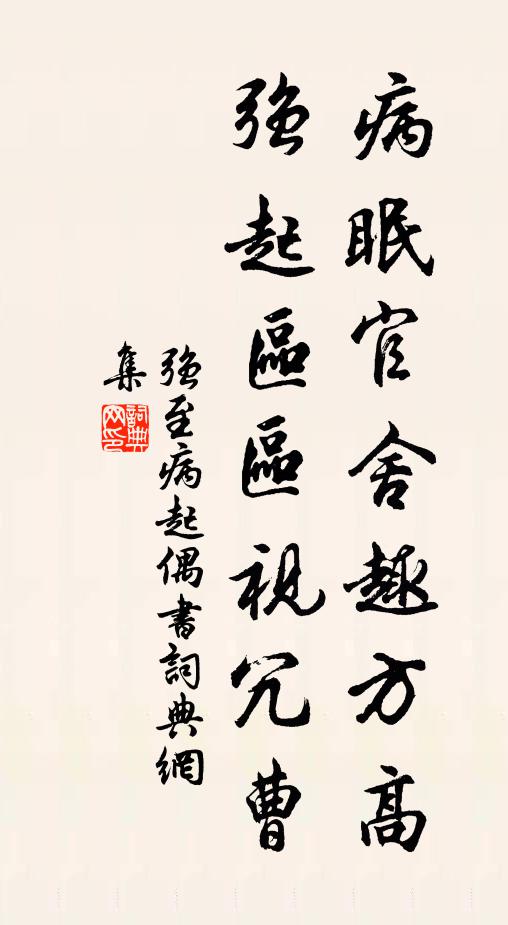 病眠官舍趣方高
強起區區視冗曹
強至病起偶書詞典網
集
詞典網印